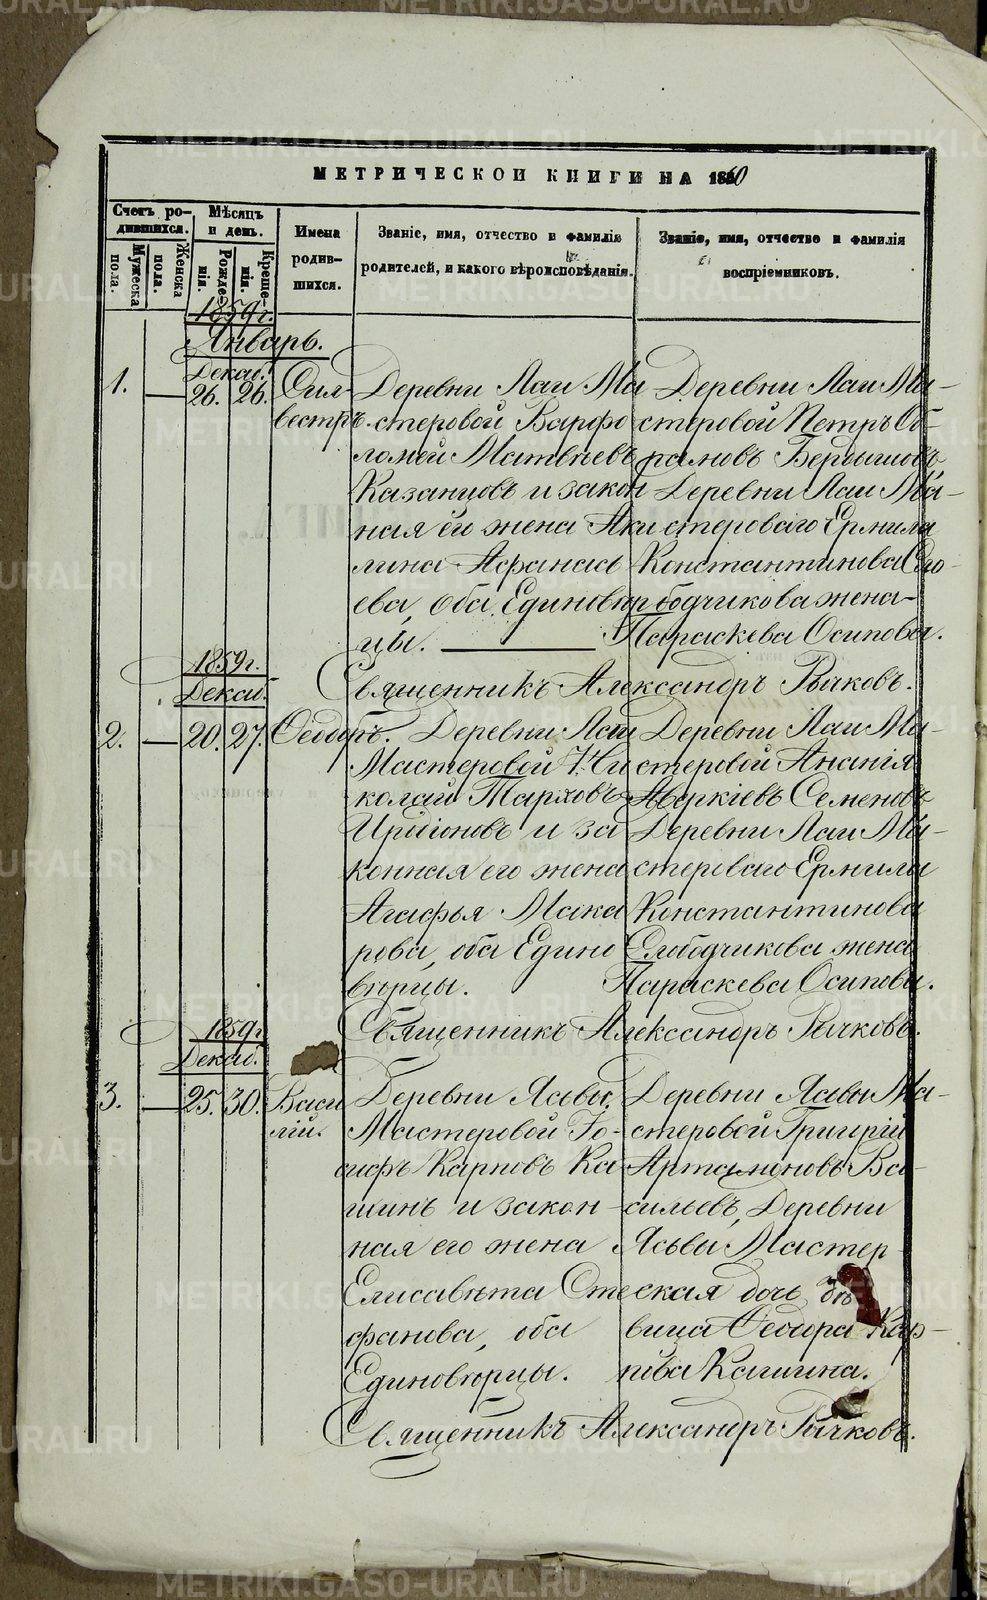 МЕТРИЧЕСКОЙ КНИГИ НА 1860
Счетъ ро-
дившихся.
Мужеска
пола.
Женска
пола.
Мѣсяцъ
и день.
Рожде-
нія.
Креще-
нія.
Имена
родив-
шихся.
Званіе, имя, отчество и фамилія
родителей, и какого вѣроисповѣданія.
Званіе, имя, отчество и фамилія
воспріемниковъ.
1859 г.
Январь.
Декаб.
1. — 26. 26.
Силь-
вестръ.
Деревни Лаи Ма
стеровой Варфо
ломей Матвѣевъ
Казанцовъ и закон
ная его жена Аки
лина Афанась
ева, оба Единовѣр
цы.
Деревни Лаи Ма-
стеровой Петръ Об-
рамовъ Бердышовъ
Деревни Лаи Ма-
стероваго Ермила
Константинова Сло-
бодчикова жена-
Параскева Осипова.
Священникъ Александръ Рычковъ.
1859 г.
Декаб.
2. — 20. 27.
Ѳеодоръ.
Деревни Лаи
Мастеровой Ни
колай Тарховъ
и за
конная его жена
Агафья Мака
рова, оба Едино
вѣрцы.
Деревни Лаи Ма-
стеровой Ананія
Аверкіевъ Семеновъ
Деревни Лаи Ма-
стероваго Ермила
Константинова
Слободчикова жена
Параскева Осипова.
Священникъ Александръ Рычковъ.
1859 г.
Декаб.
3. — 25. 30.
Васи
лій.
Деревни Ясьвы,
Мастеровой Іо-
сифъ Карповъ Ка
шинъ и закон-
ная его жена
Елисавѣта Сте
фанова, оба
Единовѣрцы.
Деревни Ясьвы Ма-
стеровой Григорій
Артамоновъ Ва-
сильевъ, Деревни
Ясьвы Мастер-
ская дочь дѣ
вица Ѳеодора Кар-
пова Кашина.
Священникъ Александръ Рычковъ.
METRIKI.GASO-URAL.RU